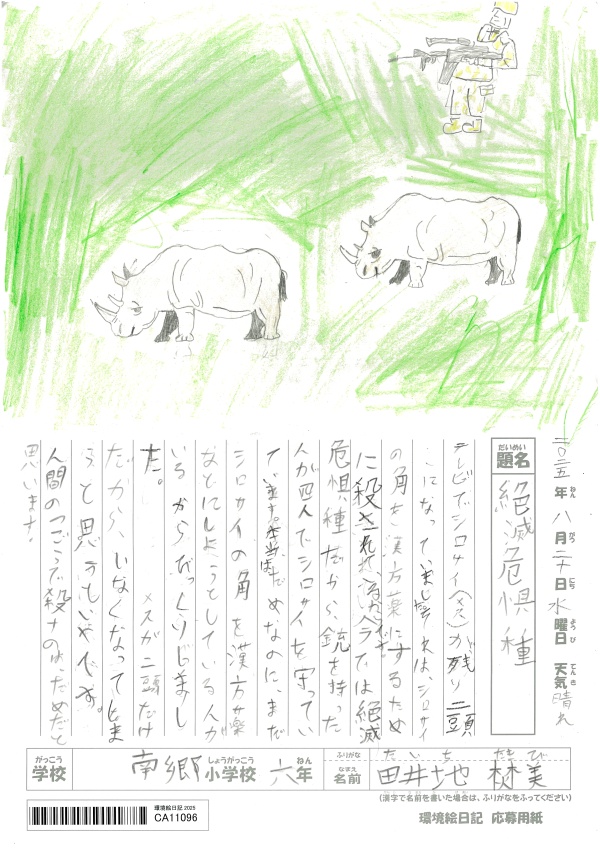 二〇二五年八月二十日水曜日 天気 晴れ
ねん がつ にち ようび てんき
だいめい
題名
絶滅危惧種
テレビでシロサイ(メス)が残り二頭
になっていました。それは、シロサイ
の角を漢方薬にするため
に殺されて では絶滅
危惧種だから、銃を持った
人が四人でシロサイを守ってい
ています。本当は、だめなのに、まだ
シロサイの角を漢方薬
などにしようとしている人が
いるからびっくりしまし
た。 メスが二頭だけ
だから、いなくなってしま
うと思うといやです。
人間のつごうで殺すのは、だめだと
思います!
がっこう しょうがっこう ねん
学校 南郷小学校 六年
ふりがな たいち
なまえ
名前 田井地 美
(漢字で名前を書いた場合は、ふりがなをふってください)
環境絵日記 2025
CA11096
環境絵日記 応募用紙